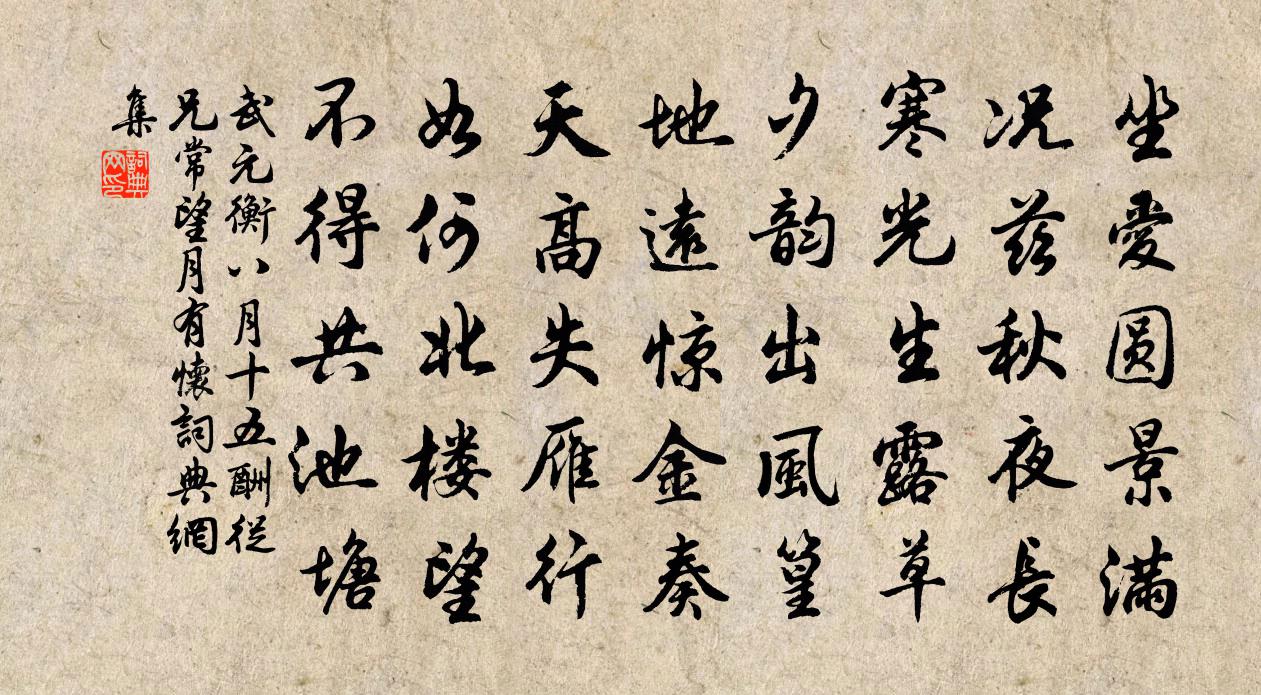 坐愛圆景满
况茲秋夜長
寒光生露草
夕韵出風篁
地遠惊金奏
天高失雁行
如何北楼望
不得共池塘
武元衡八月十五酬從
兄常望月有懷詞典網
集
詞典網印